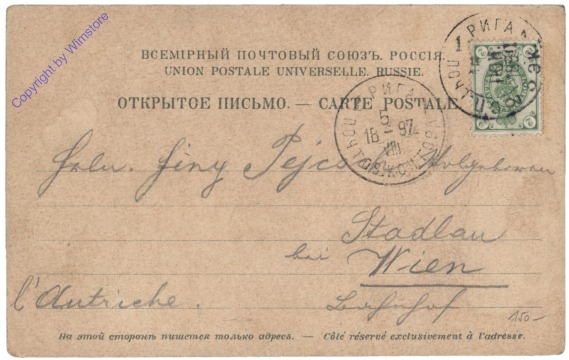 Copyright by Wimstore
ВСЕМІРНЫЙ ПОЧТОВЫЙ СОЮЗЪ. РОССІЯ.
UNION POSTALE UNIVERSELLE. RUSSIE.
ОТКРЫТОЕ ПИСЬМО. — CARTE POSTALE.
РИГА
РИГА
5
18 97
VIII
Stadlau
bei Wien
l'Autriche. Bahnhof
150-
На этой сторонѣ пишется только адресъ. — Côté réservé exclusivement à l'adresse.